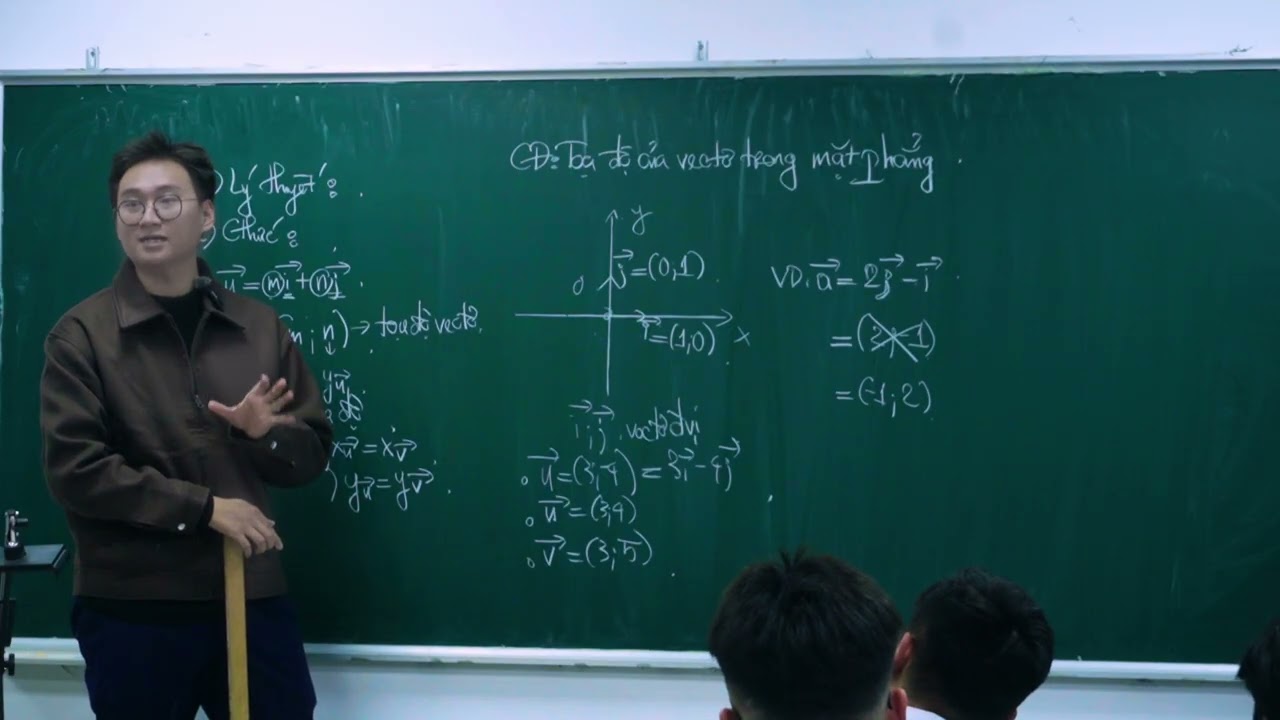 CĐ: Tọa độ của vectơ trong mặt phẳng.
) Lý thuyết:
) Cthức:
u⃗ = mi⃗ + nj⃗
m; n) → tọa độ vectơ.
x_u⃗ = x_v⃗
) y_u⃗ = y_v⃗
y
j⃗ = (0,1)
0
i⃗ = (1,0)
x
i⃗, j⃗ : vectơ đvị
u⃗ = (3;-4) = 3i⃗ - 4j⃗
u⃗ = (3,4)
v⃗ = (3;5)
VD: a⃗ = 2j⃗ - i⃗
= (-1; 2)